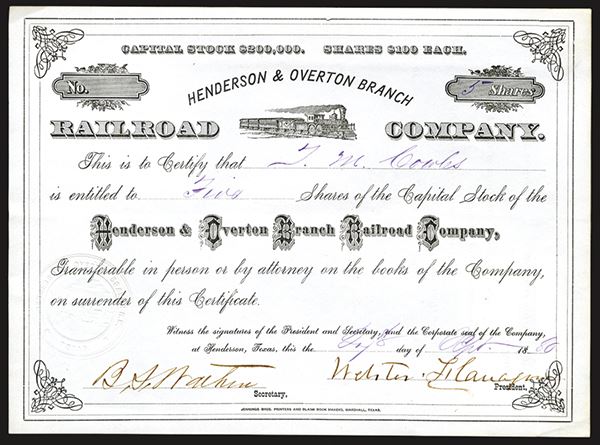 CAPITAL STOCK $200,000. SHARES $100 EACH.
No.
5 Shares
HENDERSON & OVERTON BRANCH
RAILROAD COMPANY.
This is to Certify that T. M. Cowles
is entitled to Five Shares of the Capital Stock of the
Henderson & Overton Branch Railroad Company,
Transferable in person or by attorney on the books of the Company,
on surrender of this Certificate.
Witness the signatures of the President and Secretary, and the Corporate seal of the Company,
at Henderson, Texas, this the day of 1880
Webster Flanagan
Secretary, President,
JENNINGS BROS. PRINTERS AND BLANK BOOK MAKERS, MARSHALL, TEXAS.